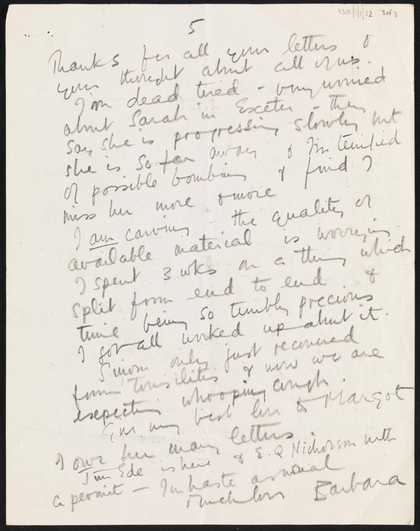 5
Thanks for all your letters &
your thought about all of us.
I'm dead tired - very worried
about Sarah in Exeter - they
say she is progressing slowly but
she is so far away & I'm terrified
of possible bombing & find I
miss her more & more.
I am carving - the quality of
available material is worrying
I spent 3 wks on a thing which
split from end to end &
time being so terribly precious
I got all worked up about it.
Simon only just recovered
from tonsilitis & now we are
expecting whooping cough.
Give my best love to Margot
I owe her many letters.
Jim Ede is here & E.Q Nicholson with
a permit - In haste as usual
much love Barbara